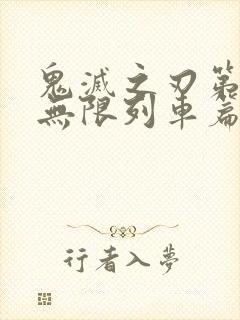 鬼滅之刃第
無限列車篇
行者入夢